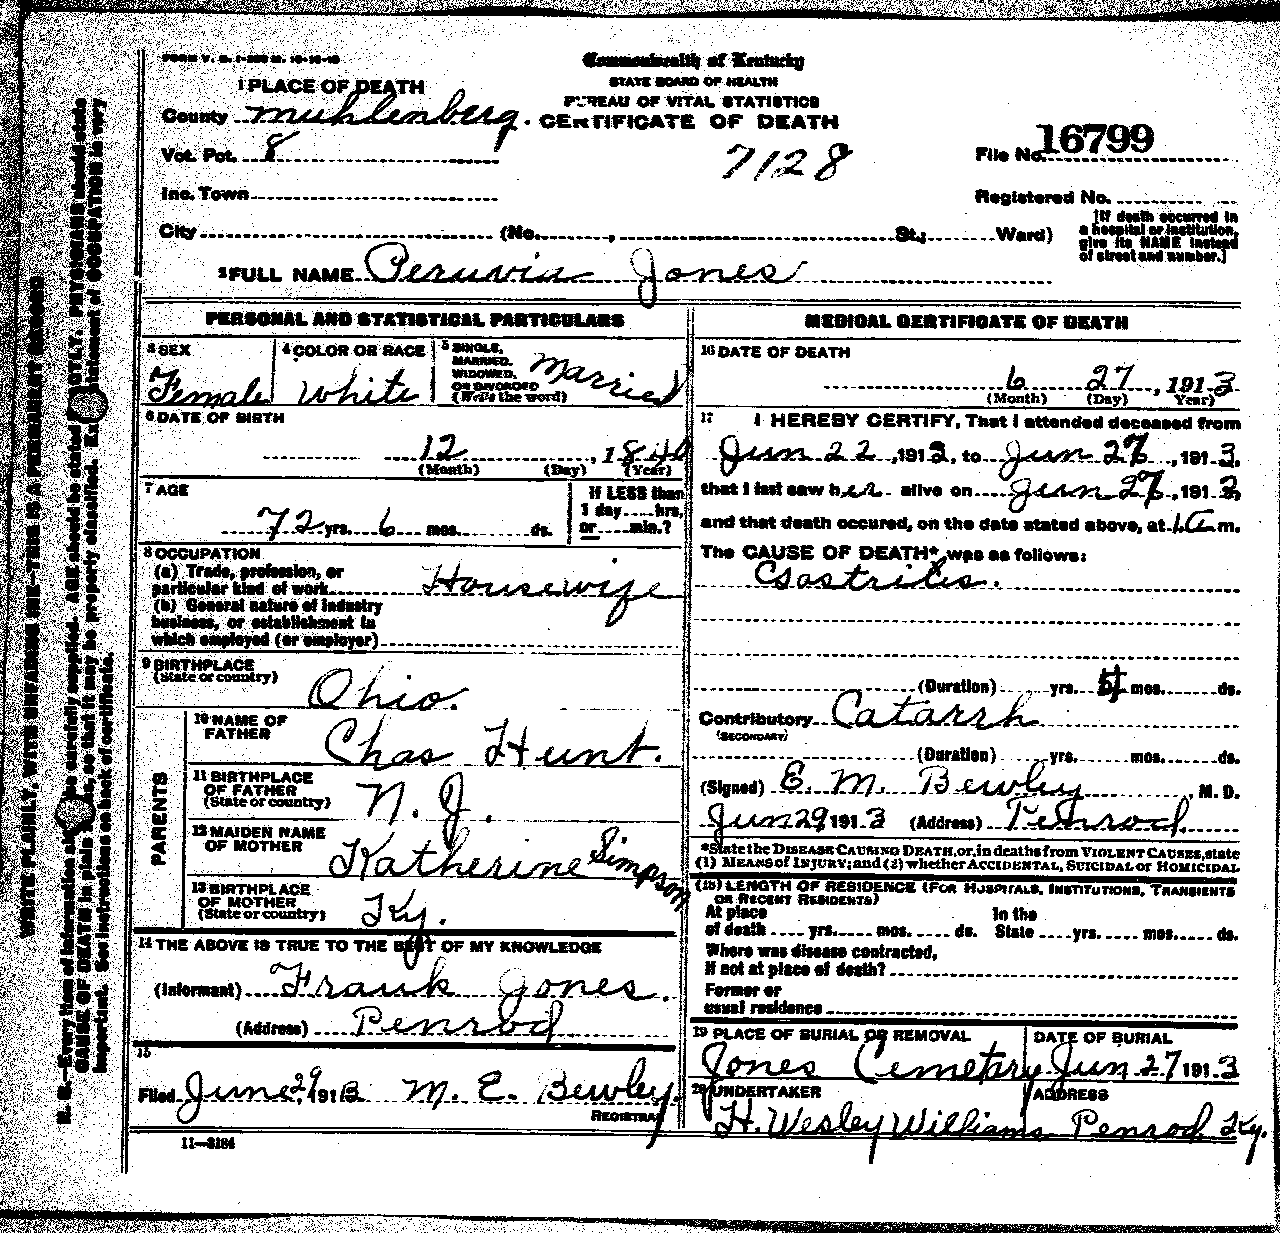 FORM V. S. 1-
Commonwealth of Kentucky
STATE BOARD OF HEALTH
BUREAU OF VITAL STATISTICS
CERTIFICATE OF DEATH
1 PLACE OF DEATH
County Muhlenberg.
Vot. Pct. 8
7128
File No. 16799
Inc. Town
Registered No.
City (No. , St.; Ward)
[If death occurred in
a hospital or institution,
give its NAME instead
of street and number.]
2 FULL NAME Peruvia Jones
PERSONAL AND STATISTICAL PARTICULARS
3 SEX
Female
4 COLOR OR RACE
White
5 SINGLE,
MARRIED,
WIDOWED,
OR DIVORCED
(Write the word)
Married
6 DATE OF BIRTH
12 , 1840
(Month) (Day) (Year)
7 AGE
72 yrs. 6 mos. ds.
If LESS than
1 day hrs,
or min.?
8 OCCUPATION
(a) Trade, profession, or
particular kind of work Housewife
(b) General nature of industry
business, or establishment in
which employed (or employer)
9 BIRTHPLACE
(State or country)
Ohio.
PARENTS
10 NAME OF
FATHER
Chas Hunt.
11 BIRTHPLACE
OF FATHER
(State or country)
N. J.
12 MAIDEN NAME
OF MOTHER
Katherine Simpson
13 BIRTHPLACE
OF MOTHER
(State or country)
Ky.
14 THE ABOVE IS TRUE TO THE BEST OF MY KNOWLEDGE
(Informant) Frank Jones.
(Address) Penrod
15
Filed June 29, 191 3 M. E. Bewley.
REGISTRAR
11-3184
MEDICAL CERTIFICATE OF DEATH
16 DATE OF DEATH
6 27 , 191 3
(Month) (Day) Year)
17 I HEREBY CERTIFY, That I attended deceased from
Jun 22 , 191 3, to Jun 27 , 191 3,
that I last saw her alive on Jun 27 , 191 3,
and that death occured, on the date stated above, at m.
The CAUSE OF DEATH* was as follows:
Gastritis.
(Duration) yrs. mos. ds.
Contributory Catarrh
(SECONDARY)
(Duration) yrs. mos. ds.
(Signed) E. M. Bewley , M. D.
Jun 29 191 3 (Address) Penrod.
*State the DISEASE CAUSING DEATH, or, in deaths from VIOLENT CAUSES, state
(1) MEANS of INJURY; and (2) whether ACCIDENTAL, SUICIDAL or HOMICIDAL
(18) LENGTH OF RESIDENCE (FOR HOSPITALS, INSTITUTIONS, TRANSIENTS
OR RECENT RESIDENTS)
At place
of death yrs. mos. ds.
In the
State yrs. mos. ds.
Where was disease contracted,
if not at place of death?
Former or
usual residence
19 PLACE OF BURIAL OR REMOVAL
Jones Cemetary
DATE OF BURIAL
Jun 27 191 3
20 UNDERTAKER
H. Wesley Williams
ADDRESS
Penrod Ky.
WRITE PLAINLY, WITH UNFADING INK—THIS IS A PERMANENT RECORD
N. B.—Every item of information should be carefully supplied. AGE should be stated EXACTLY. PHYSICIANS should state
CAUSE OF DEATH in plain terms, so that it may be properly classified. Exact statement of OCCUPATION is very
important. See instructions on back of certificate.